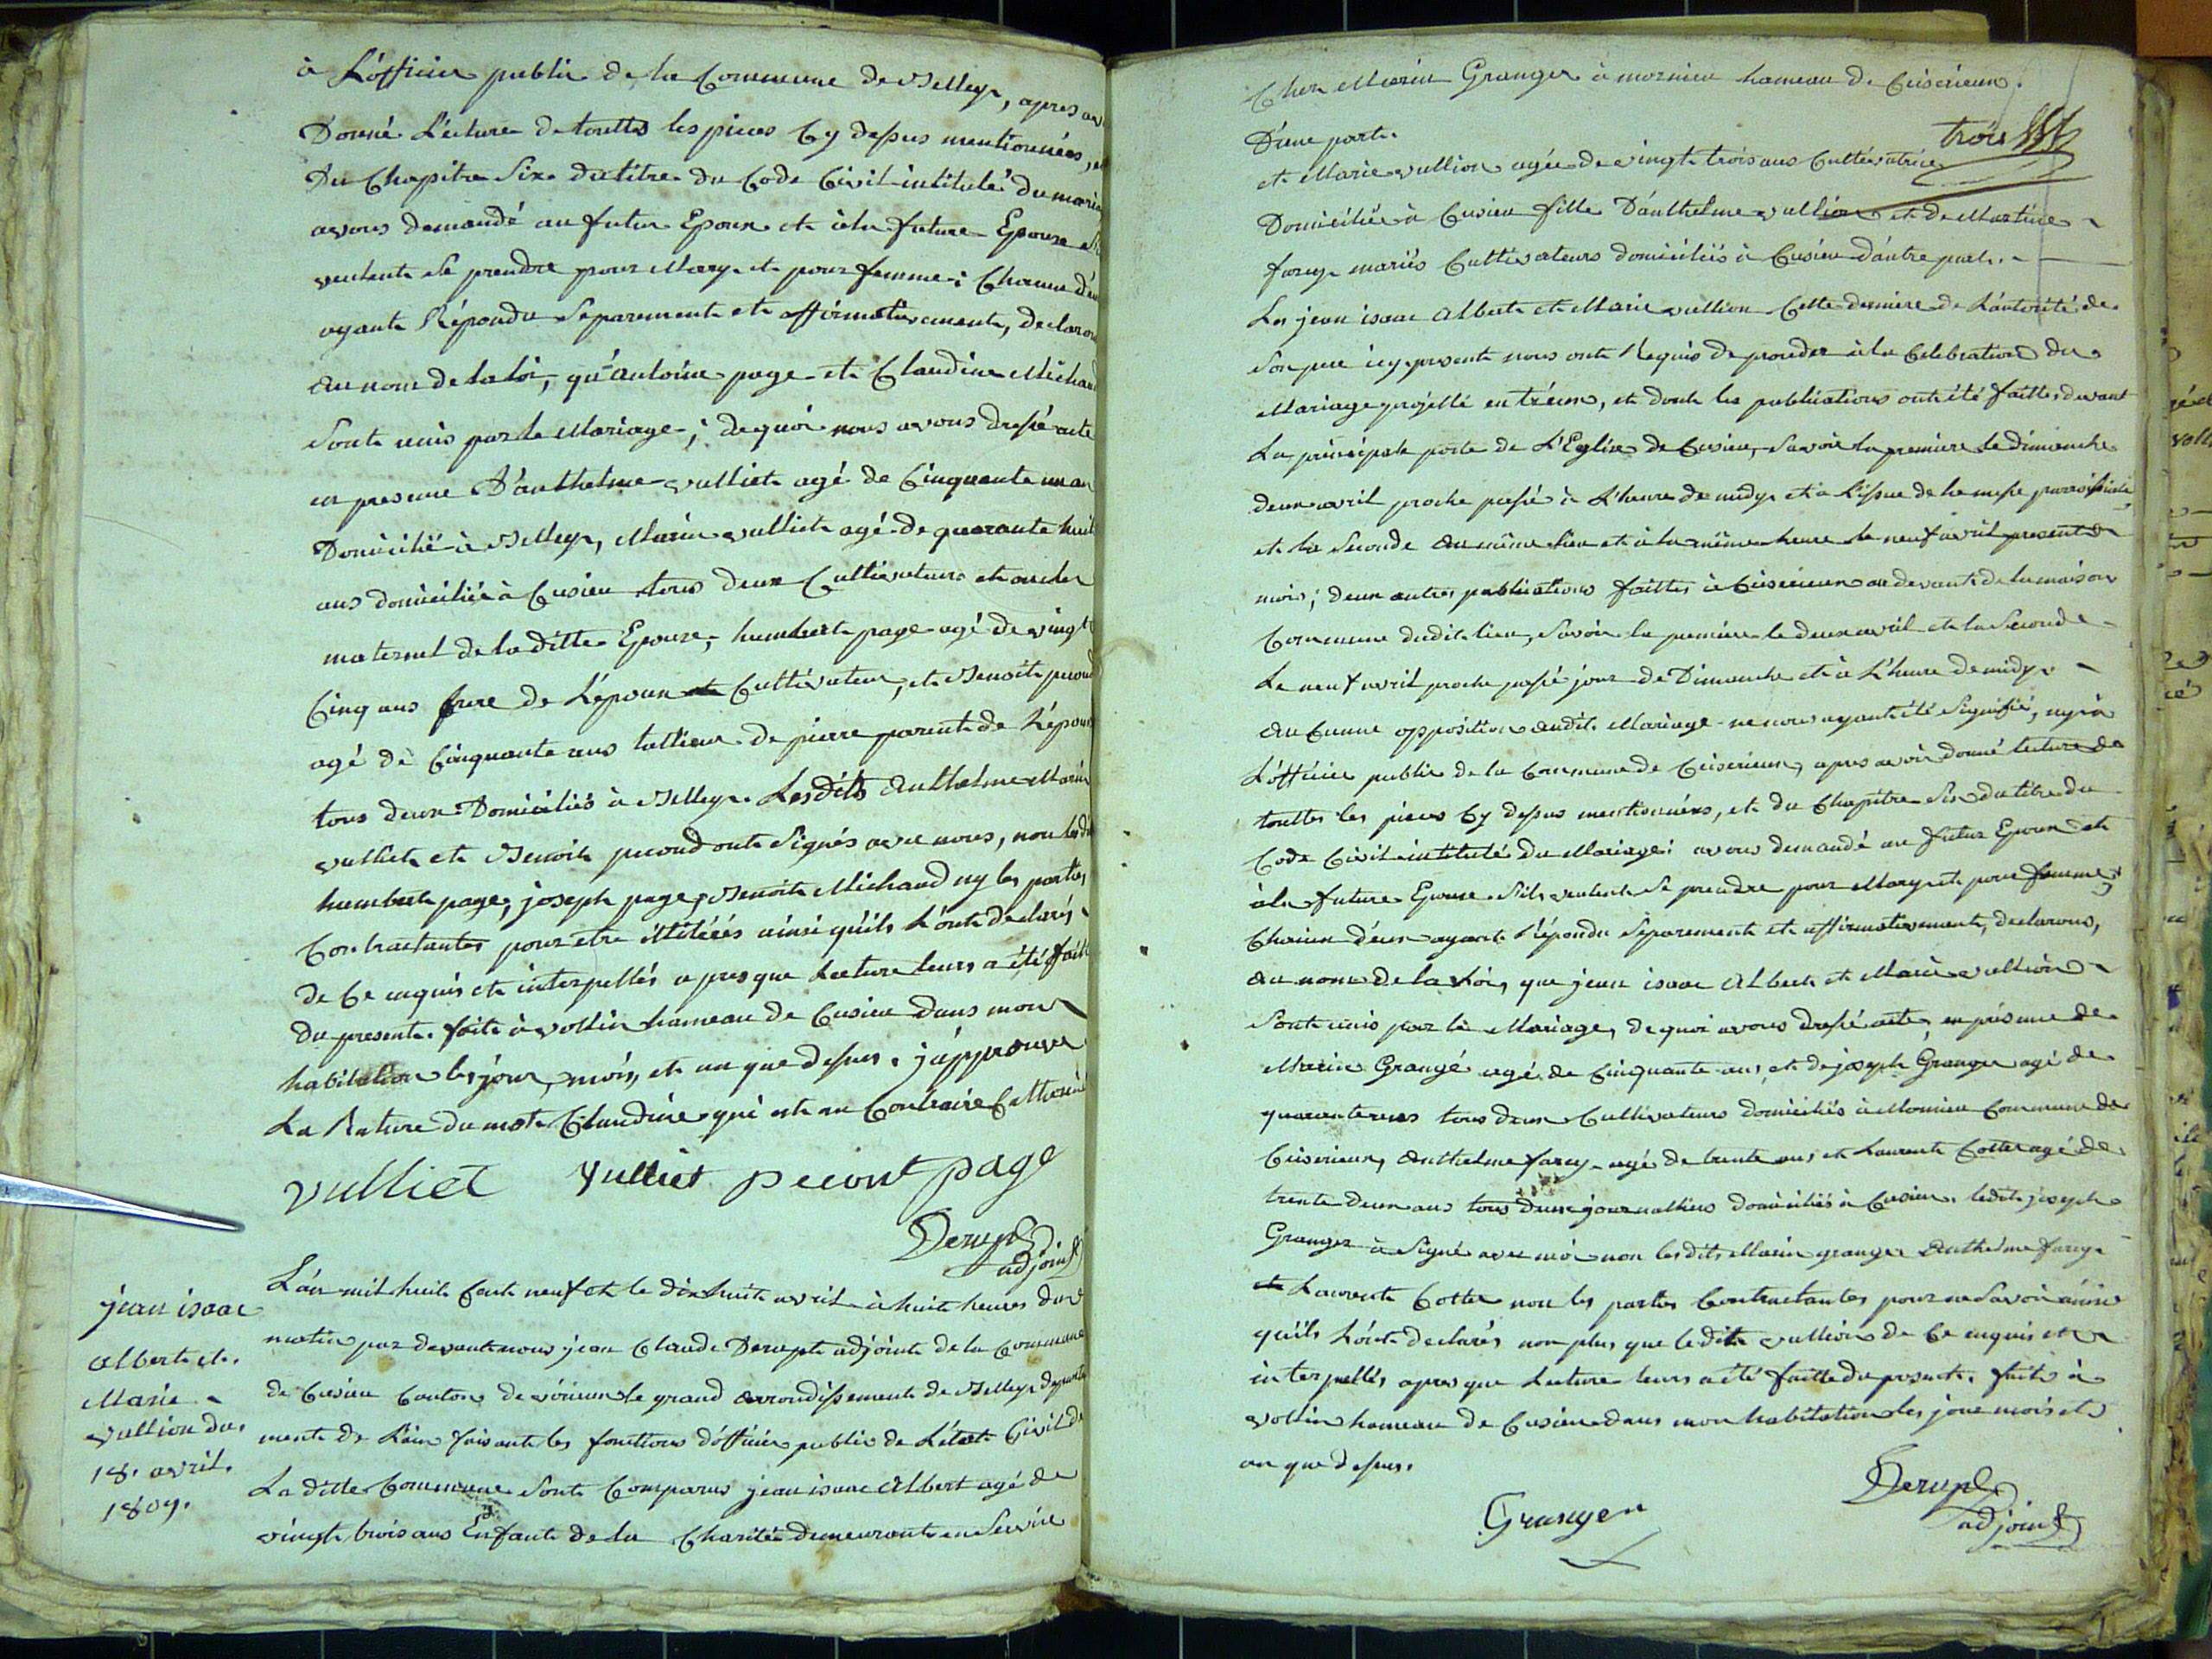 à L'officier public de la Commune de Belley, apres av
Donné Lecture de touttes les pieces Cy dessus mentionnées, et
Du Chapitre Six du titre du Code Civil intitulé du maria
avons demandé au futur Epoux et à la future Epouse s'il
veulent se prendre pour Mary et pour femme; Chacun d'eu
ayant Répondu Separement et affirmativement, declaron
au nom de la loi, qu'antoine page et Claudine Michau
Sont unis par le Mariage; dequoi nous avons dressé acte
en presence D'anthelme vulliet agé de Cinquante un an
Domicilié à Belley, Marin vulliet agé de quarante huit
ans domicilié à Cusieu tous deux Cultivateurs et oncles
maternel de la ditte Epouse, humbert page agé de vingt
Cinq ans frere de L'epoux et Cultivateur, et Benoit pecoud
agé de Cinquante ans tallieur de pierre parent de L'epoux
tous deux Domiciliés à Belley. Lesdits Anthelme Marin
vulliet et Benoit pecoud ont Signés avec nous, non lesdi
humbert page, joseph page, Benoit Michaud ny les parties
Contractantes pour etre illitérés ainsi qu'ils L'ont déclarés
de Ce enquis et interpellés apres que Lecture leurs a été faitte
du present. fait à vollin hameau de Cusieu dans mon
habitation les jour, mois, et an que dessus. j'approuve
La Rature du mot Claudine qui est au Contraire Catherine
vulliet vulliet pecout page
Derupt
adjoint
jean isaac
albert et
Marie
vullion du
18. avril.
1809.
L'an mil huit Cent neuf et le dix huit avril à huit heures du
matin par devant nous jean Claude Derupt adjoint de la Commune
de Cusieu Canton de virieux le grand arrondissement de Belley departe
ment de L'ain faisant les fonctions d'officier public de L'état Civil de
La ditte Commune Sont Comparus jean isaac Albert agé de
vingt trois ans Enfant de la Charité demeurant en Service
Chez Marin Granger à mornieu hameau de Ceiserieux.
D'une part.
trois
et Marie vullion agée de vingt trois ans Cultivatrice
Domiciliée à Cusieu fille D'anthelme vullion et de Martine
farcy mariés Cultivateurs domiciliés à Cusieu d'autre part.
Les jean isaac Albert et Marie vullion Cette derniere de L'autorité de
Son pere icy present nous ont Requis de proceder à la Celebration du
Mariage projetté entr'eux, et dont les publications ont été faittes devant
La principale porte de L'Eglise de Cusieu, Savoir la premiere le dimanche
deux avril proche passé à L'heure de midy et à L'issue de la messe parroissiale
et la Seconde au même lieu et à la même heure le neuf avril present
mois; deux autres publications faittes à Ceiserieux au devant de la maison
Commune dudit lieu, Savoir la premiere le deux avril et la Seconde
Le neuf avril proche passé jour de Dimanche et à L'heure de midy.
Aucunne opposition audit Mariage ne nous ayant été Signifié, ny à
L'officier public de la Commune de Ceiserieux, apres avoir donné lecture de
touttes les pieces Cy dessus mentionnées, et du Chapitre Six du titre du
Code Civil intitulé du Mariage: avons demandé au futur Epoux et
à la future Epouse S'ils veulent Se prendre pour Mary et pour femme;
Chacun d'eux ayant Répondu Separement et affirmativement, declarons,
au nom de la Loi, que jean isaac Albert et Marie vullion
Sont unis par le Mariage, de quoi avons dressé acte, en presence de
Marin Grangé agé de Cinquante ans, et de joseph Granger agé de
quarante ans tous deux Cultivateurs domiciliés à Mornieu Commune de
Ceiserieux, Anthelme farcy agé de trente ans et Laurent Cotter agé de
trente deux ans tous deux journalliers domiciliés à Cusieu. ledit joseph
Granger à Signé avec moi non lesdits Marin granger Anthelme farcy
et Laurent Cotter non les parties Contractantes pour ne Savoir ainsi
qu'ils L'ont declarés non plus que ledit vullion de Ce enquis et
interpellés apres que Lecture leurs a été faitte du present. fait à
vollin hameau de Cusieu dans mon habitation les jour mois et
an que dessus.
Granger
Derupt
adjoint